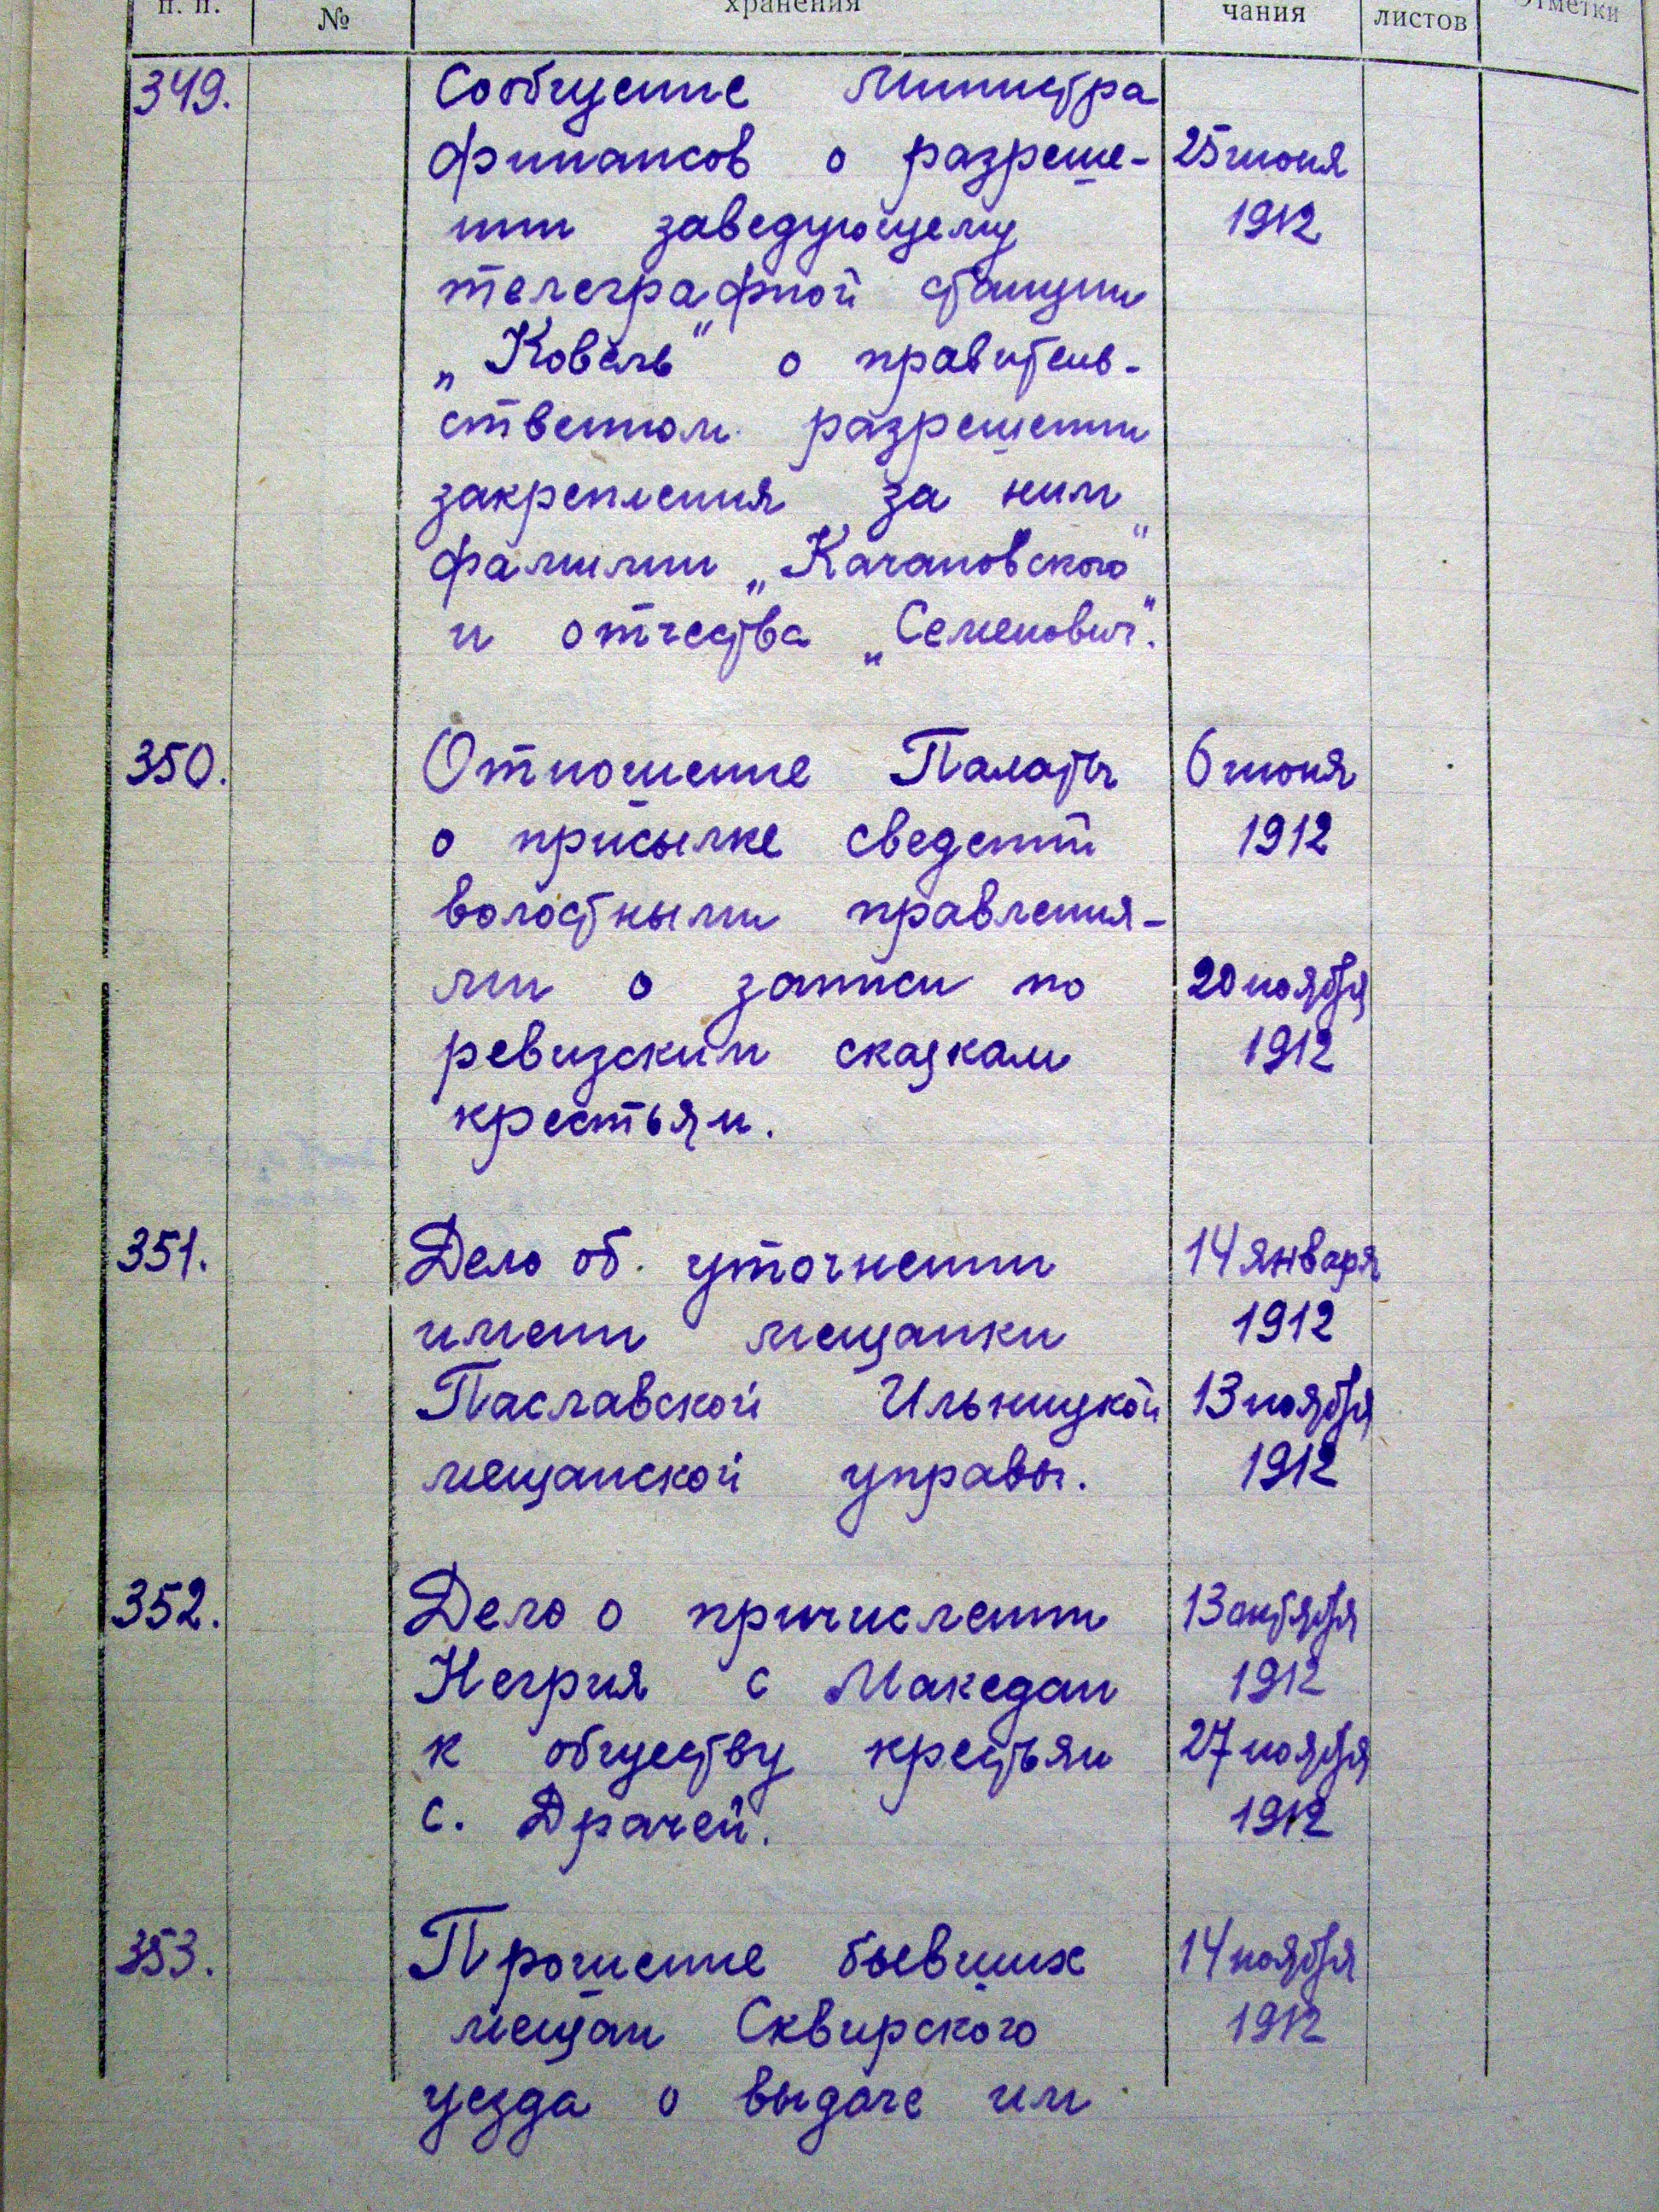 п. п.
№
хранения
чания
листов
Отметки
349. Сообщение Министра
финансов о разреше- 25 июня
нии заведующему 1912
телеграфной станции
„Ковель" о правитель-
ственном разрешении
закрепления за ним
фамилии „Качановского"
и отчества „Семенович".
350. Отношение Палаты 6 июня
о присылке сведений 1912
волостными правления-
ми о записи по 20 ноября
ревизским сказкам 1912
крестьян.
351. Дело об. уточнении 14 января
имени мещанки 1912
Паславской Ильницкой 13 ноября
мещанской управы. 1912
352. Дело о причислении 13 октября
Негрия с Македан 1912
к обществу крестьян 27 ноября
с. Драчей. 1912
353. Прошение бывших 14 ноября
мещан Сквирского 1912
уезда о выдаче им